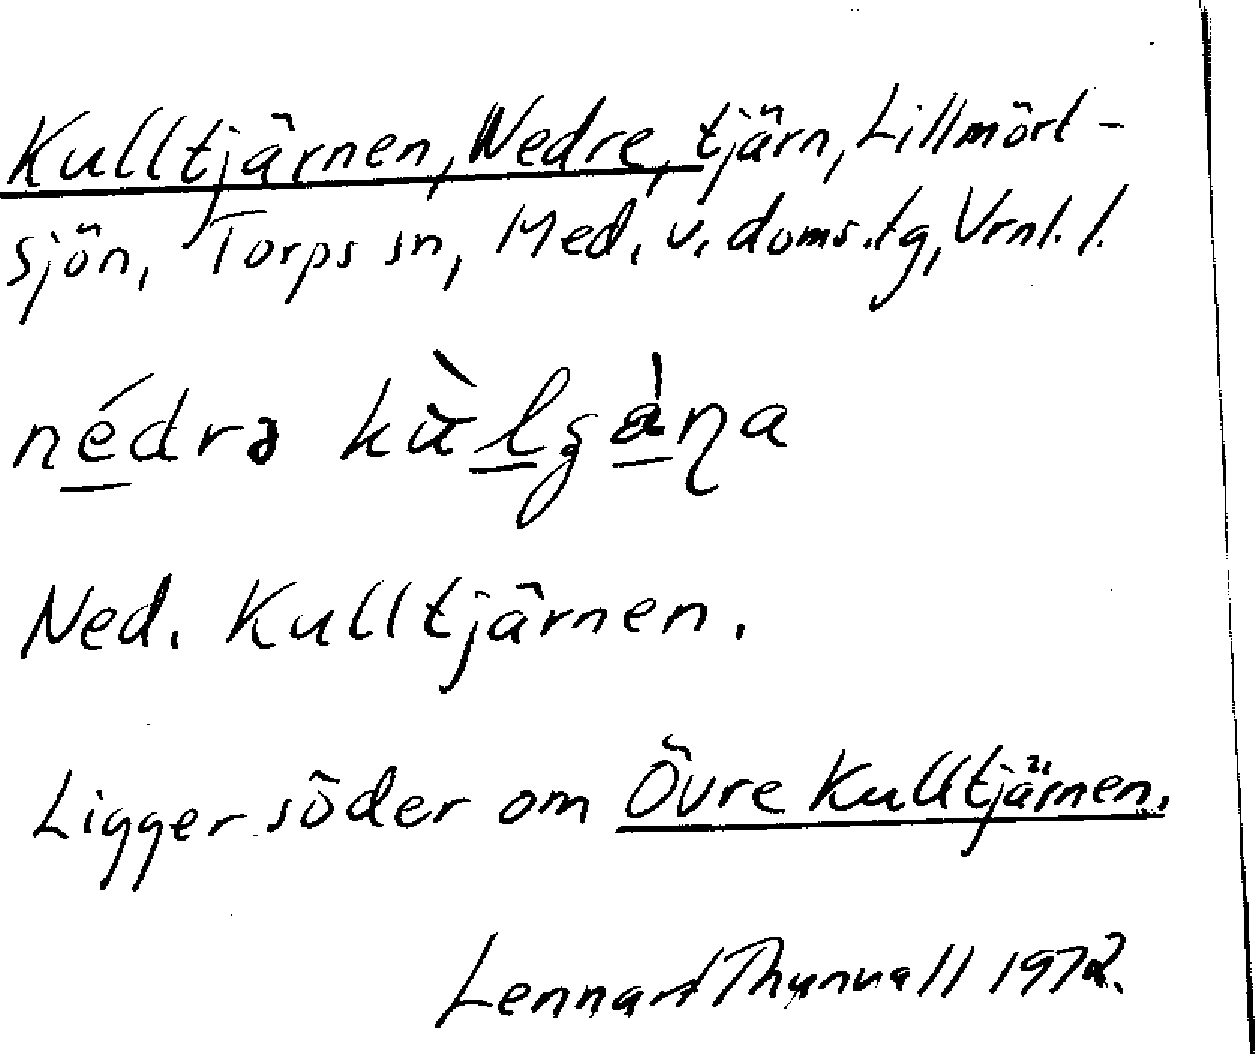 Kulltjärnen, Nedre, tjärn, Lillmört-
sjön, Torps sn, Med. v. doms.lg, Vrnl. l.
nédrə
Ned. Kulltjärnen.
Ligger söder om Övre Kulltjärnen.
Lennart Thunvall 1972.